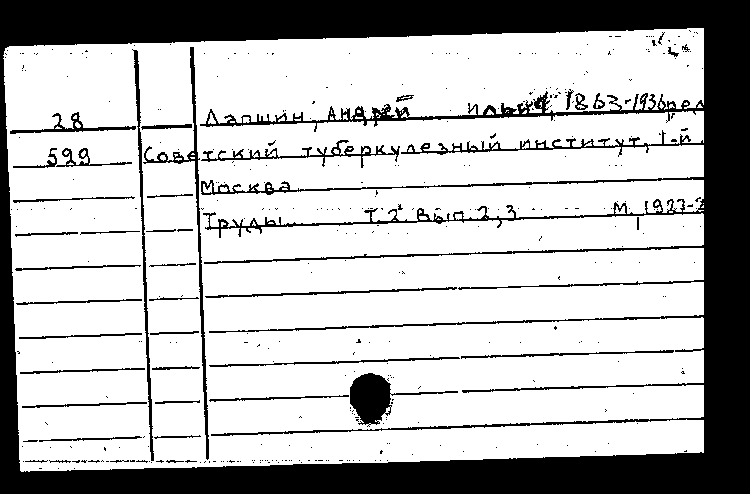 28 Лапшин, Андрей Ильич, 1863-1936, ред
599 Советский туберкулезный институт, 1-й.
Москва
Труды Т.2. Вып. 2, 3 М. 1927-2